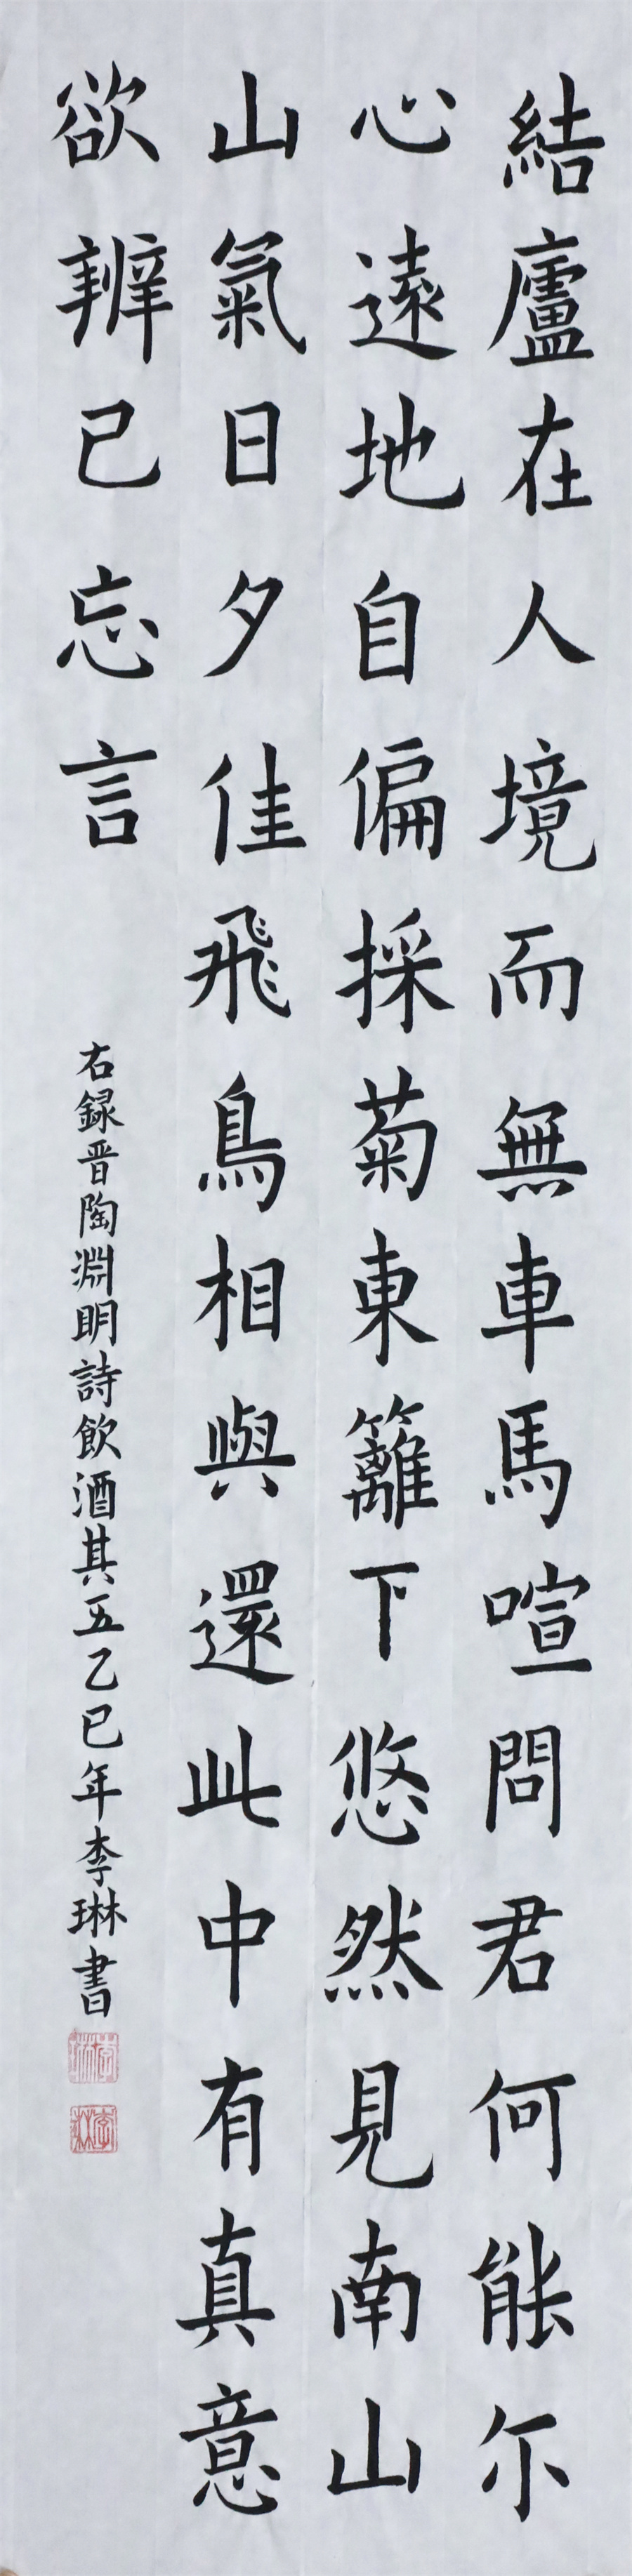 結廬在人境而無車馬喧問君何能尓
心遠地自偏採菊東籬下悠然見南山
山氣日夕佳飛鳥相與還此中有真意
欲辨已忘言
右録晋陶淵明詩飲酒其五乙巳年李琳書
李琳
李琳